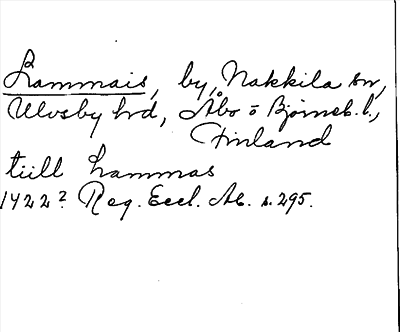 Lammais, by, Nakkila sn,
Ulvsby hrd, Åbo o Bjørneb. l.,
Finland
tiill Lammas
1422? Reg. Eccl. Ab. s. 295.